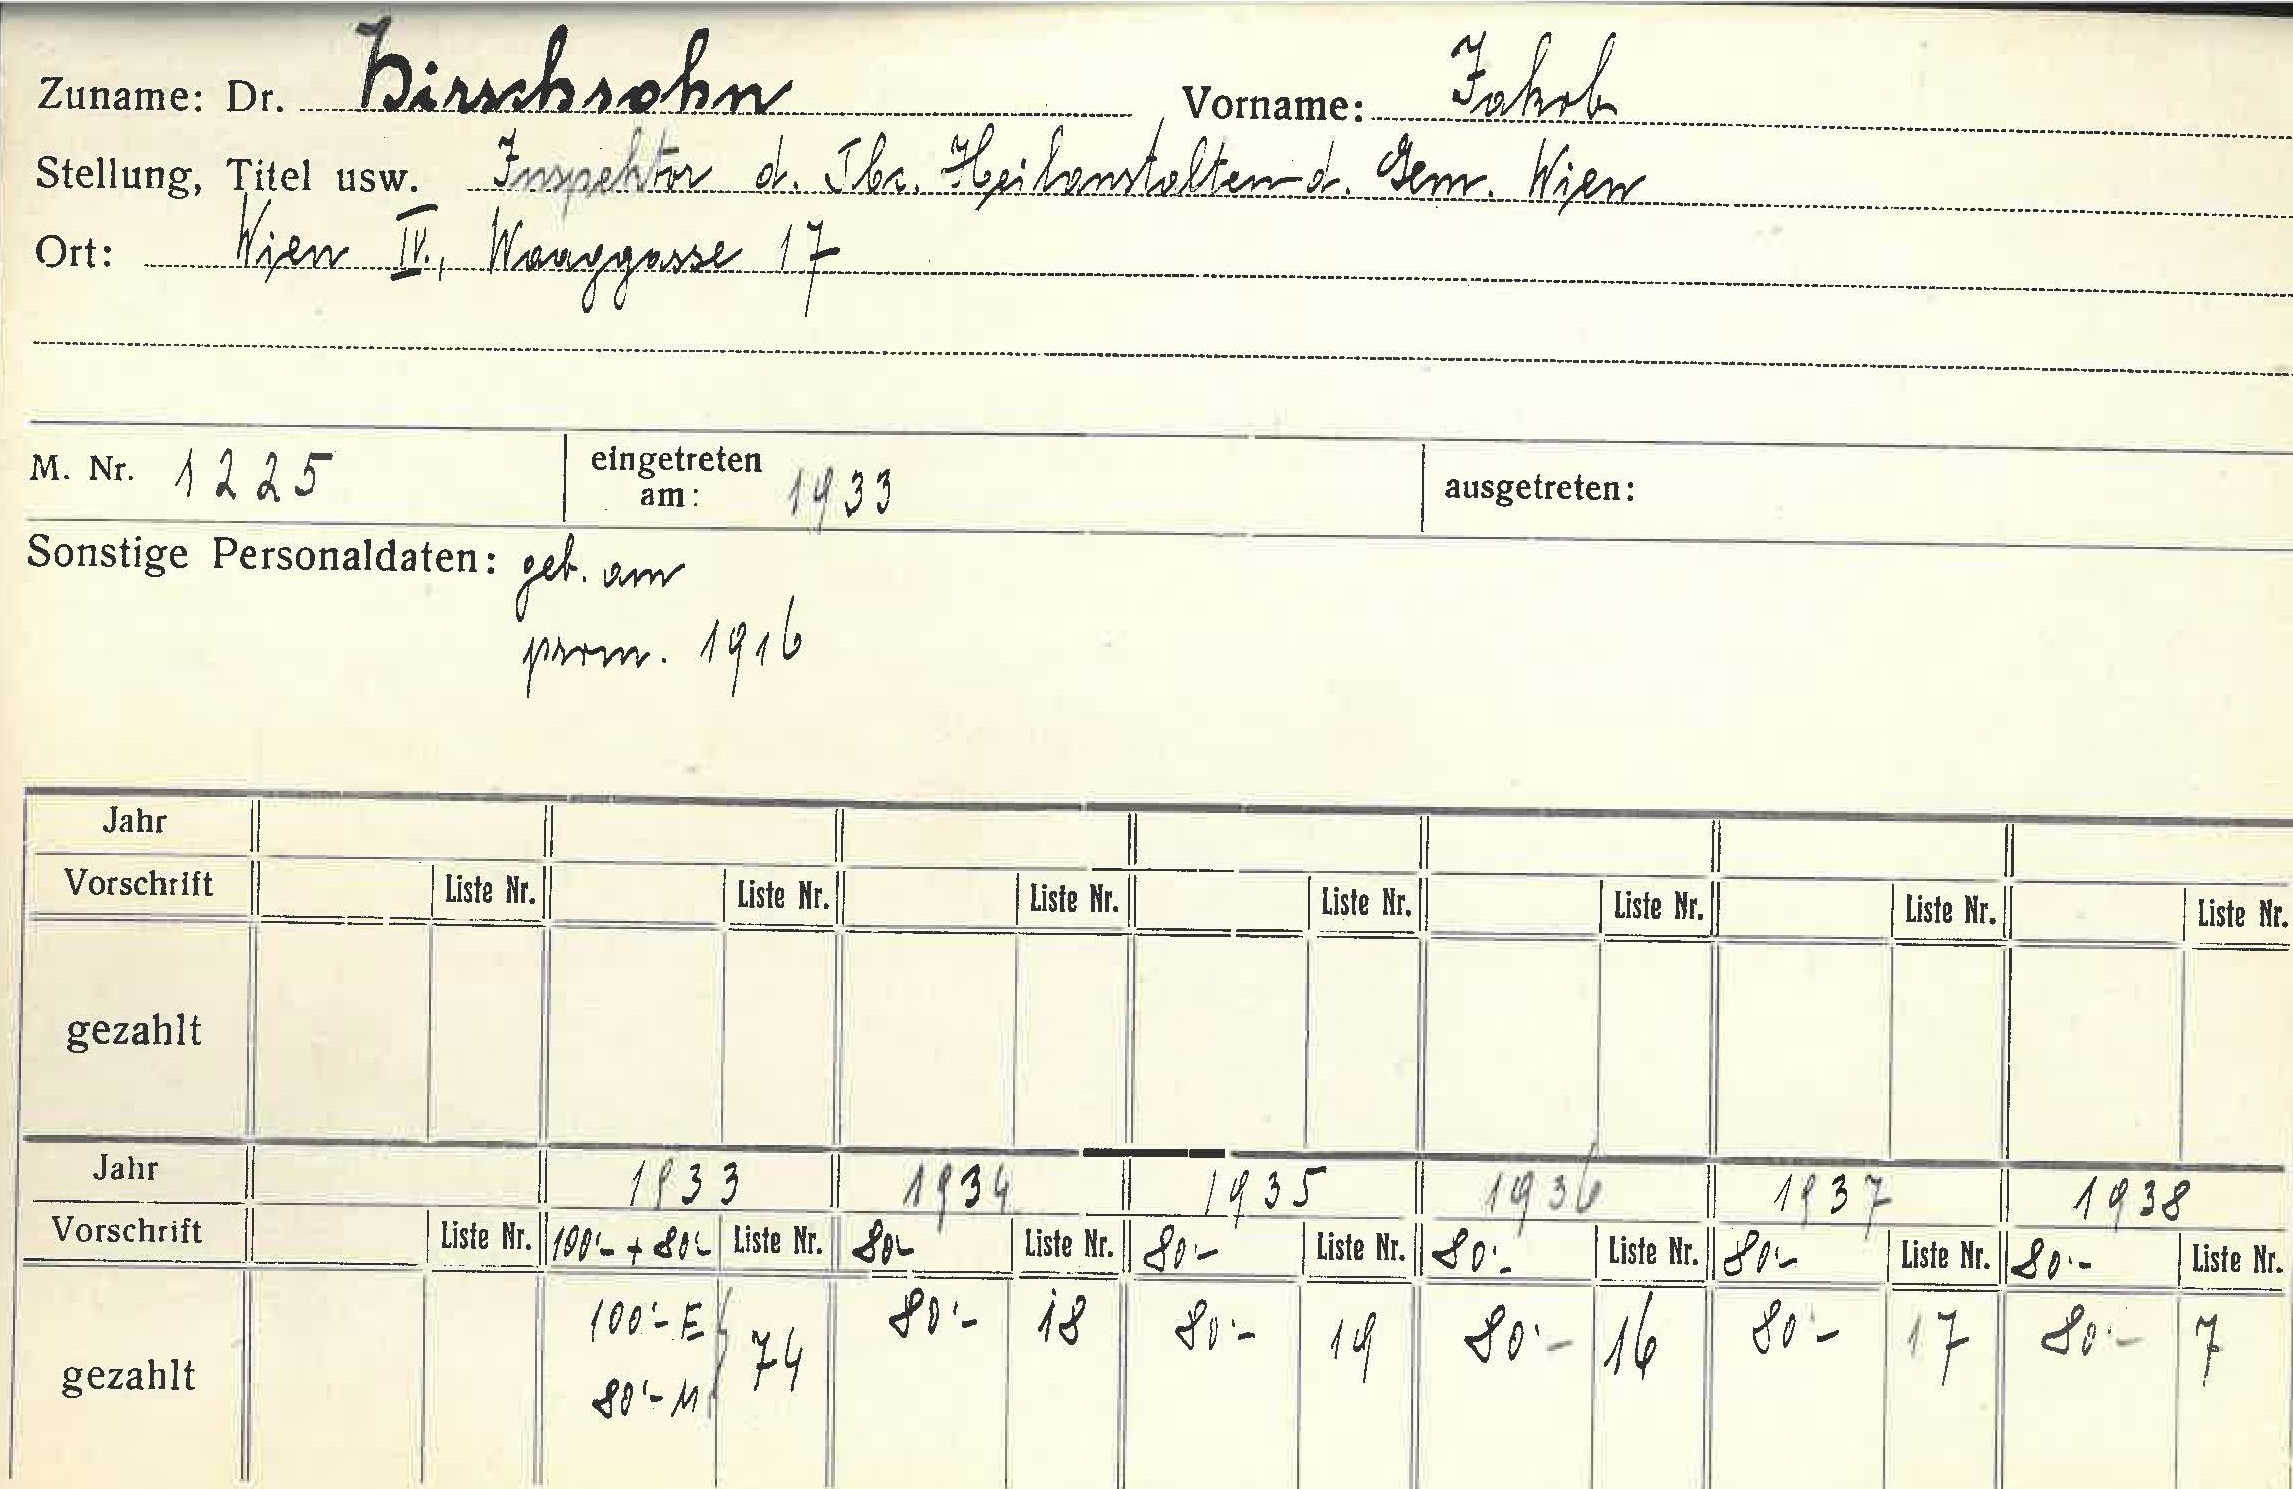 Zuname: Dr. Hirschsohn Vorname: Jakob
Stellung, Titel usw. Inspektor d. Tbc. Heilanstalten d. Gem. Wien
Ort: Wien IV., Waaggasse 17
M. Nr. 1225 eingetreten am: 1933 ausgetreten:
Sonstige Personaldaten: geb. am
prom. 1916
Jahr
Vorschrift Liste Nr. Liste Nr. Liste Nr. Liste Nr. Liste Nr. Liste Nr. Liste Nr.
gezahlt
Jahr 1933 1934 1935 1936 1937 1938
Vorschrift Liste Nr. 100'- + 80'- Liste Nr. 80'- Liste Nr. 80'- Liste Nr. 80'- Liste Nr. 80'- Liste Nr. 80'- Liste Nr.
gezahlt 100'- E 74 80'- 18 80'- 19 80'- 16 80'- 17 80'- 7
80'- M